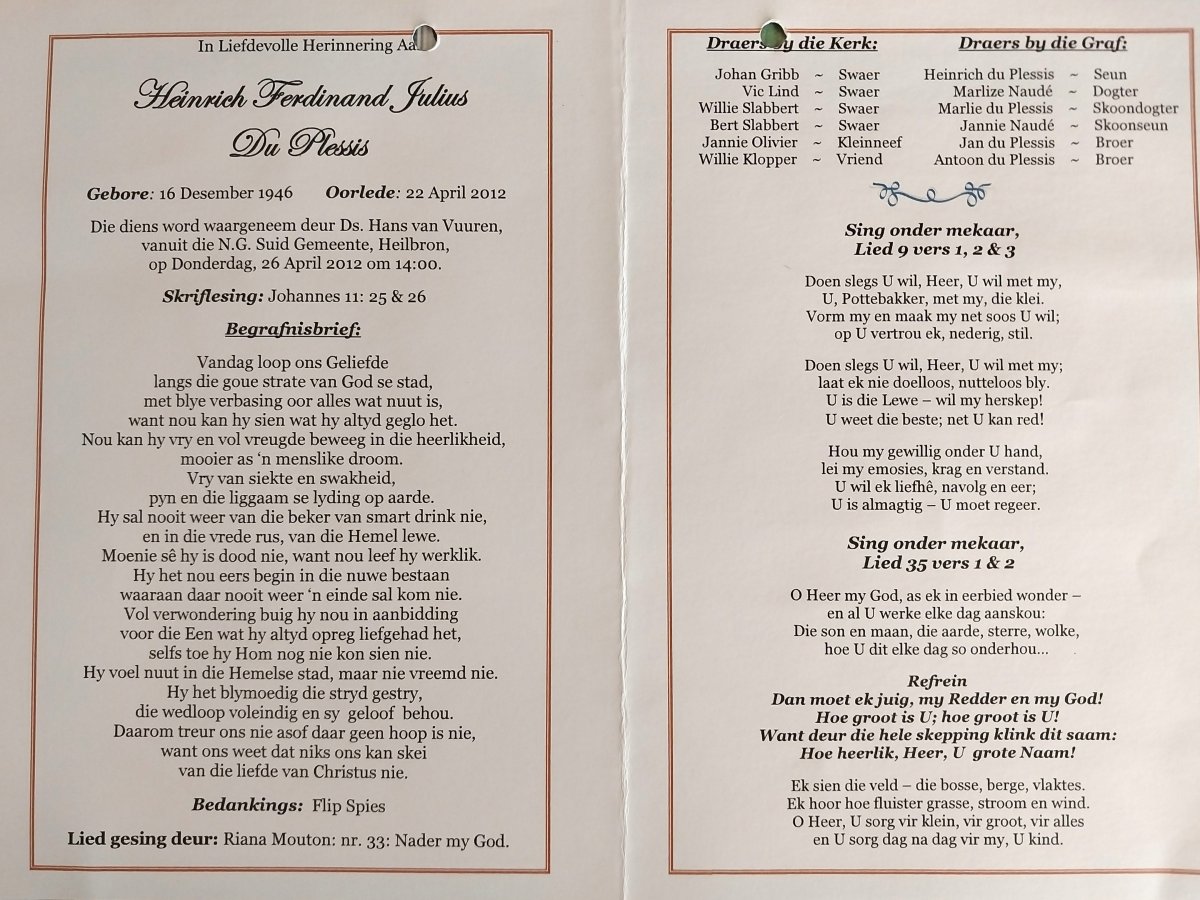 In Liefdevolle Herinnering Aa
Heinrich Ferdinand Julius
Du Plessis
Gebore: 16 Desember 1946 Oorlede: 22 April 2012
Die diens word waargeneem deur Ds. Hans van Vuuren,
vanuit die N.G. Suid Gemeente, Heilbron,
op Donderdag, 26 April 2012 om 14:00.
Skriflesing: Johannes 11: 25 & 26
Begrafnisbrief:
Vandag loop ons Geliefde
langs die goue strate van God se stad,
met blye verbasing oor alles wat nuut is,
want nou kan hy sien wat hy altyd geglo het.
Nou kan hy vry en vol vreugde beweeg in die heerlikheid,
mooier as ‘n menslike droom.
Vry van siekte en swakheid,
pyn en die liggaam se lyding op aarde.
Hy sal nooit weer van die beker van smart drink nie,
en in die vrede rus, van die Hemel lewe.
Moenie sê hy is dood nie, want nou leef hy werklik.
Hy het nou eers begin in die nuwe bestaan
waaraan daar nooit weer ‘n einde sal kom nie.
Vol verwondering buig hy nou in aanbidding
voor die Een wat hy altyd opreg liefgehad het,
selfs toe hy Hom nog nie kon sien nie.
Hy voel nuut in die Hemelse stad, maar nie vreemd nie.
Hy het blymoedig die stryd gestry,
die wedloop voleindig en sy geloof behou.
Daarom treur ons nie asof daar geen hoop is nie,
want ons weet dat niks ons kan skei
van die liefde van Christus nie.
Bedankings: Flip Spies
Lied gesing deur: Riana Mouton: nr. 33: Nader my God.
Draers by die Kerk:
Johan Gribb ~ Swaer
Vic Lind ~ Swaer
Willie Slabbert ~ Swaer
Bert Slabbert ~ Swaer
Jannie Olivier ~ Kleinneef
Willie Klopper ~ Vriend
Draers by die Graf:
Heinrich du Plessis ~ Seun
Marlize Naudé ~ Dogter
Marlie du Plessis ~ Skoondogter
Jannie Naudé ~ Skoonseun
Jan du Plessis ~ Broer
Antoon du Plessis ~ Broer
Sing onder mekaar,
Lied 9 vers 1, 2 & 3
Doen slegs U wil, Heer, U wil met my,
U, Pottebakker, met my, die klei.
Vorm my en maak my net soos U wil;
op U vertrou ek, nederig, stil.
Doen slegs U wil, Heer, U wil met my;
laat ek nie doelloos, nutteloos bly.
U is die Lewe – wil my herskep!
U weet die beste; net U kan red!
Hou my gewillig onder U hand,
lei my emosies, krag en verstand.
U wil ek liefhê, navolg en eer;
U is almagtig – U moet regeer.
Sing onder mekaar,
Lied 35 vers 1 & 2
O Heer my God, as ek in eerbied wonder –
en al U werke elke dag aanskou:
Die son en maan, die aarde, sterre, wolke,
hoe U dit elke dag so onderhou...
Refrein
Dan moet ek juig, my Redder en my God!
Hoe groot is U; hoe groot is U!
Want deur die hele skepping klink dit saam:
Hoe heerlik, Heer, U grote Naam!
Ek sien die veld – die bosse, berge, vlaktes.
Ek hoor hoe fluister grasse, stroom en wind.
O Heer, U sorg vir klein, vir groot, vir alles
en U sorg dag na dag vir my, U kind.